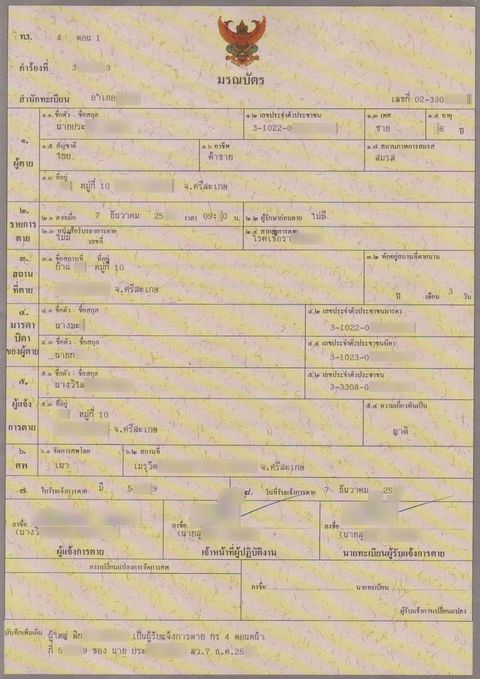 ทร. 4 ตอน 1
คำร้องที่ 3 9
มรณบัตร
สำนักทะเบียน อำเภอ เลขที่ 02-330
๑. ผู้ตาย
๑.๑ ชื่อตัว - ชื่อสกุล ๑.๒ เลขประจำตัวประชาชน ๑.๓ เพศ ๑.๔ อายุ
นายประ 3-1022-0 ชาย 6 ปี
๑.๕ สัญชาติ ๑.๖ อาชีพ ๑.๗ สถานภาพการสมรส
ไทย ค้าขาย สมรส
๑.๘ ที่อยู่
หมู่ที่ 10 จ.ศรีสะเกษ
๒. รายการตาย
๒.๑ ตายเมื่อ 7 ธันวาคม 25 เวลา 09: 0 น. ๒.๒ ผู้รักษาก่อนตาย ไม่มี
๒.๓ หนังสือรับรองการตาย ๒.๔ สาเหตุการตาย
ไม่มี เลขที่ โรคเชื้อรา
๓. สถานที่ตาย
๓.๑ ชื่อสถานที่ ที่อยู่ ๓.๒ พักอยู่สถานที่ตายนาน
บ้าน หมู่ที่ 10
จ.ศรีสะเกษ ปี เดือน 3 วัน
๔. มารดา บิดา ของผู้ตาย
๔.๑ ชื่อตัว - ชื่อสกุล ๔.๒ เลขประจำตัวประชาชนมารดา
นางมะ 3-1022-0
๔.๓ ชื่อตัว - ชื่อสกุล ๔.๔ เลขประจำตัวประชาชนบิดา
นายท 3-1023-0
๕. ผู้แจ้งการตาย
๕.๑ ชื่อตัว - ชื่อสกุล ๕.๒ เลขประจำตัวประชาชน
นางวิไล 3-3308-0
๕.๓ ที่อยู่ ๕.๔ ความเกี่ยวพันเป็น
หมู่ที่ 10
จ.ศรีสะเกษ ญาติ
๖. ศพ
๖.๑ จัดการศพโดย ๖.๒ สถานที่
เผา เมรุวัด จ.ศรีสะเกษ
๗. ใบรับแจ้งการตาย มี 5 9 ๘. วันที่รับแจ้งการตาย 7 ธันวาคม 25
ลงชื่อ ลงชื่อ ลงชื่อ
(นางวิ (นายสุ (นายสุ
ผู้แจ้งการตาย เจ้าหน้าที่ผู้ปฏิบัติงาน นายทะเบียนผู้รับแจ้งการตาย
การเปลี่ยนแปลงการจัดการศพ
ลงชื่อ นายทะเบียน
ผู้รับแจ้งการเปลี่ยนแปลง
บันทึกเพิ่มเติม ผู้ใหญ่ เป็นผู้รับแจ้งการตาย ทร 4 ตอนหน้า
ที่ 5 9 ของ นาย ประ ลว.7 ธ.ค.25